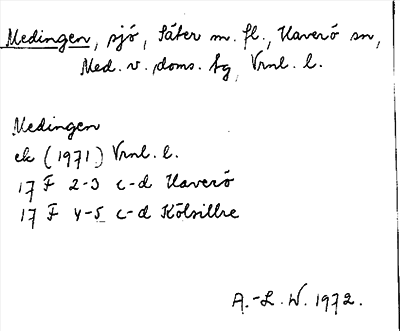 Medingen, sjö, Säter m. fl., Haverö sn,
Med. v. doms. tg, Vrnl. l.
Medingen
ek (1971) Vrnl. l.
17 F 2-3 c-d Haverö
17 F 4-5 c-d Kölsillre
A.-L. W. 1972.